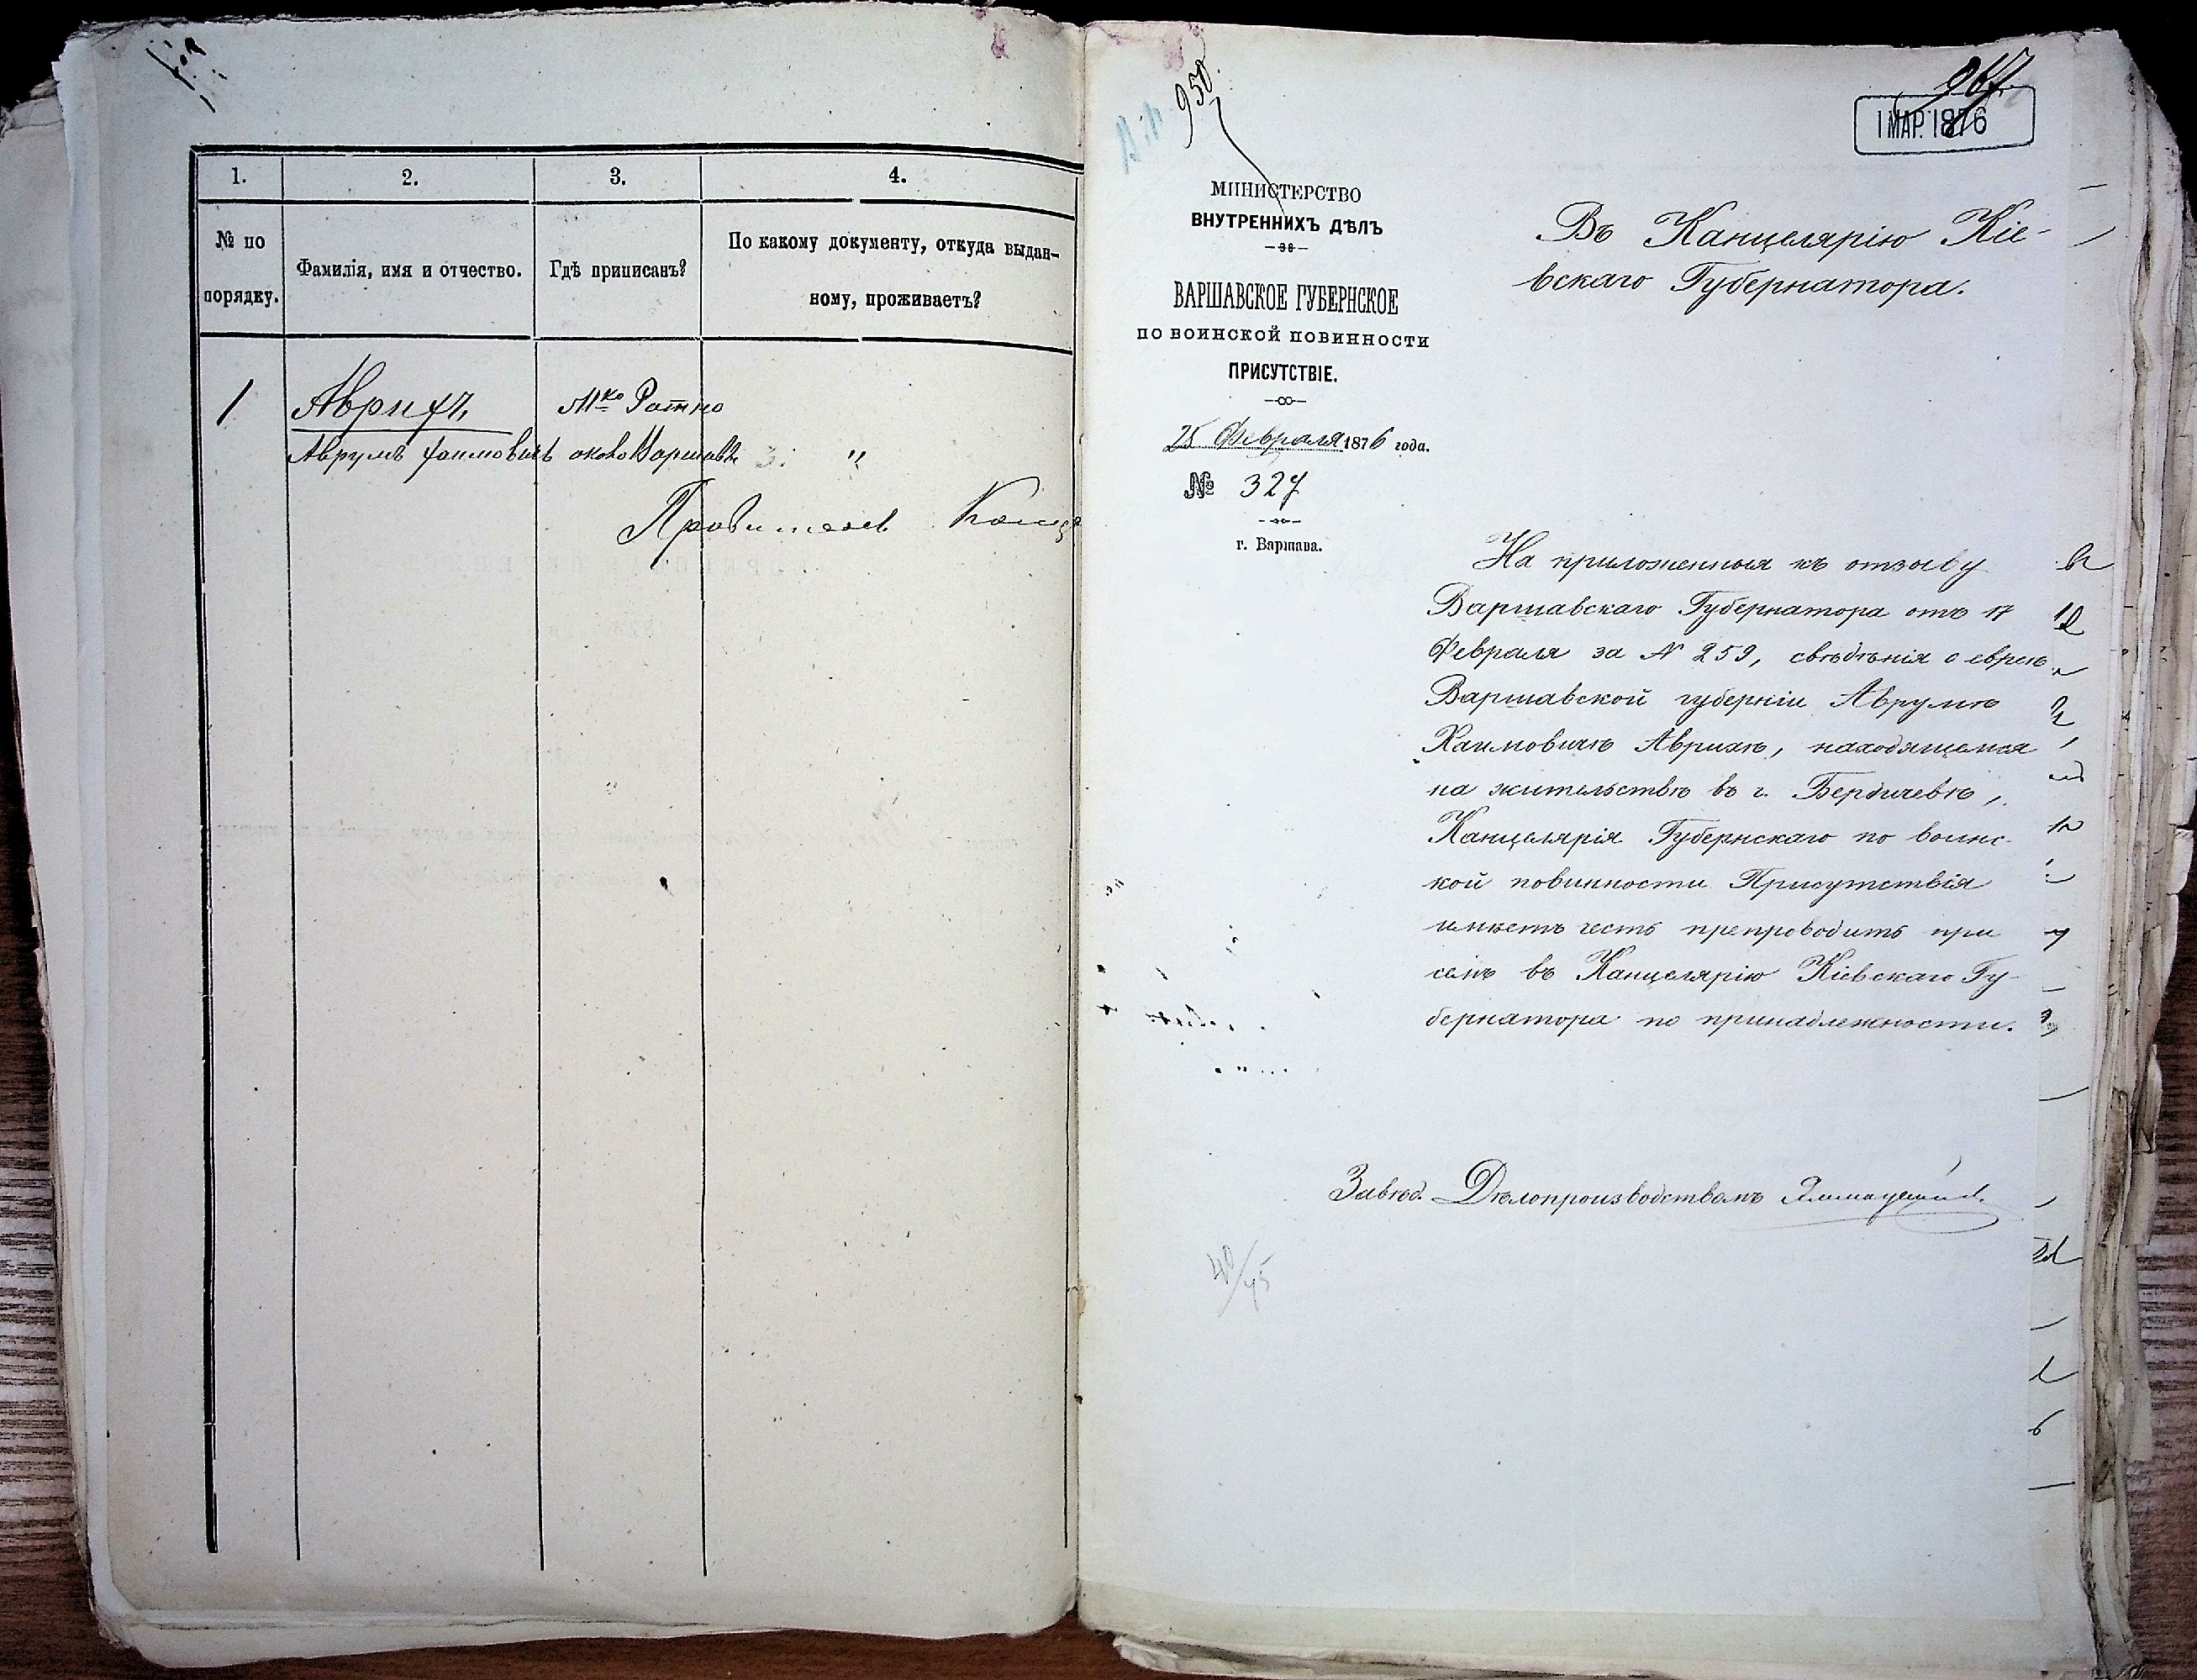 1.
2.
3.
4.
№ по порядку.
Фамилія, имя и отчество.
Гдѣ приписанъ?
По какому документу, откуда выдан-
ному, проживаетъ?
1
Аврихъ
Мко Ратно
Аврумъ Хаимовичъ
около Варшавы
"
Правитель
950
1 МАР. 1876
МИНИСТЕРСТВО
ВНУТРЕННИХЪ ДѢЛЪ
ВАРШАВСКОЕ ГУБЕРНСКОЕ
ПО ВОИНСКОЙ ПОВИННОСТИ
ПРИСУТСТВІЕ.
25 Февраля 1876 года.
№ 327
г. Варшава.
Въ Канцелярію Кіе-
вскаго Губернатора.
На приложенныя къ отзыву
Варшавскаго Губернатора отъ 17
Февраля за N 259, свѣдѣнія о евреѣ
Варшавской губерніи Аврумѣ
Хаимовичѣ Аврихѣ, находящемся
на жительствѣ въ г. Бердичевѣ,
Канцелярія Губернскаго по воинс-
кой повинности Присутствія
имѣетъ честь препроводить при
семъ въ Канцелярію Кіевскаго Гу-
бернатора по принадлежности.
Завѣд. Дѣлопроизводствомъ